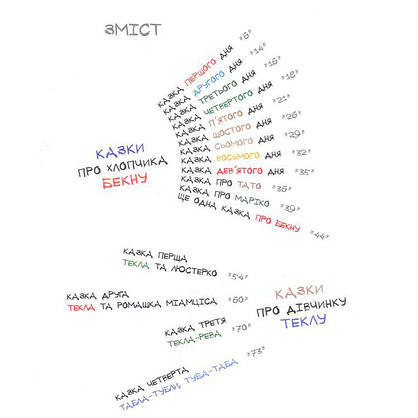 ЗМІСТ
КАЗКИ
ПРО ХЛОПЧИКА
БЕКНУ
КАЗКА ПЕРШОГО ДНЯ "6"
КАЗКА ДРУГОГО ДНЯ "14"
КАЗКА ТРЕТЬОГО ДНЯ "16"
КАЗКА ЧЕТВЕРТОГО ДНЯ "18"
КАЗКА П'ЯТОГО ДНЯ "21"
КАЗКА ШОСТОГО ДНЯ "26"
КАЗКА СЬОМОГО ДНЯ "29"
КАЗКА ВОСЬМОГО ДНЯ "32"
КАЗКА ДЕВ'ЯТОГО ДНЯ "35"
КАЗКА ПРО ТАТО "36"
КАЗКА ПРО МАРІКО "39"
ЩЕ ОДНА КАЗКА ПРО БЕКНУ "44"
КАЗКА ПЕРША
ТЕКЛА ТА ЛЮСТЕРКО "54"
КАЗКА ДРУГА
ТЕКЛА ТА РОМАШКА МІАМЦІСА "60"
КАЗКА ТРЕТЯ
ТЕКЛА-РЕВА "70"
КАЗКА ЧЕТВЕРТА
ТАБЛА-ТУБЛИ, ТУБА-ТАБА "73"
КАЗКИ
ПРО ДІВЧИНКУ
ТЕКЛУ